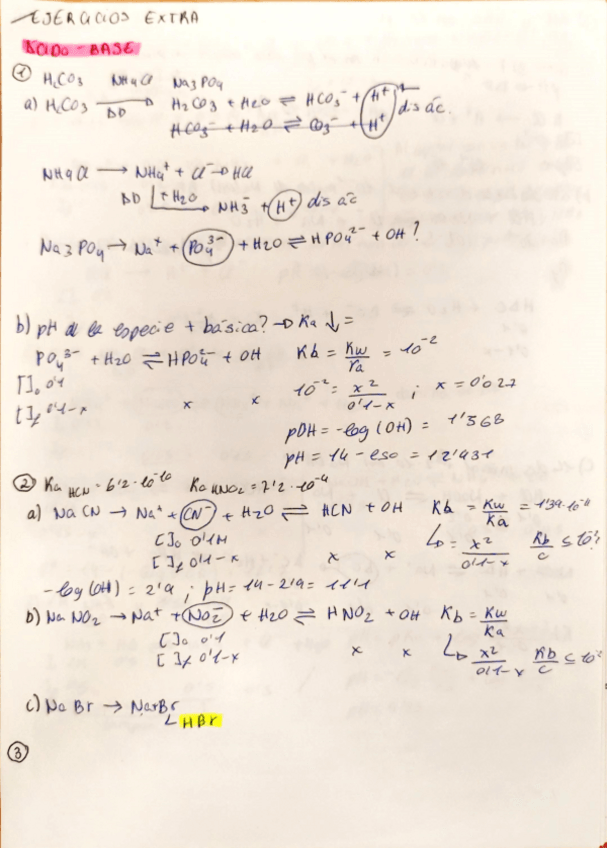 EJERCICIOS EXTRA
ÁCIDO-BASE
① H₂CO₃ NH₄Cl Na₃PO₄
a) H₂CO₃ → H₂CO₃ + H₂O ⇌ HCO₃⁻ + H⁺ dis ác.
HCO₃⁻ + H₂O ⇌ CO₃⁻ + H⁺
NH₄Cl → NH₄⁺ + Cl⁻ → HCl
+ H₂O → NH₃⁻ + H⁺ dis ác
Na₃PO₄ → Na⁺ + PO₄³⁻ + H₂O ⇌ HPO₄²⁻ + OH⁻?
b) pH de la especie + básica? → Ka ↓ =
PO₄³⁻ + H₂O ⇌ HPO₄²⁻ + OH Kb = Kw/Ka = 10⁻²
[ ]₀ 0'1
[ ]f 0'1-x x x
10⁻² = x²/0'1-x ; x = 0'027
pOH = -log (OH) = 1'568
pH = 14 - eso = 12'431
② Ka HCN = 6'2·10⁻¹⁰ Ka HNO₂ = 7'2·10⁻⁴
a) NaCN → Na⁺ + CN⁻ + H₂O ⇌ HCN + OH Kb = Kw/Ka = 1'39·10⁻¹¹
[ ]₀ 0'1M
[ ]f 0'1-x x x
= x²/0'1-x Kb/C ≤ 10⁻⁴
-log (OH) = 2'9 ; pH = 14 - 2'9 = 11'1
b) NaNO₂ → Na⁺ + NO₂⁻ + H₂O ⇌ HNO₂ + OH Kb = Kw/Ka
[ ]₀ 0'1
[ ]f 0'1-x x x
x²/0'1-x Kb/C ≤ 10⁻
c) NaBr → Na+Br
HBr
③